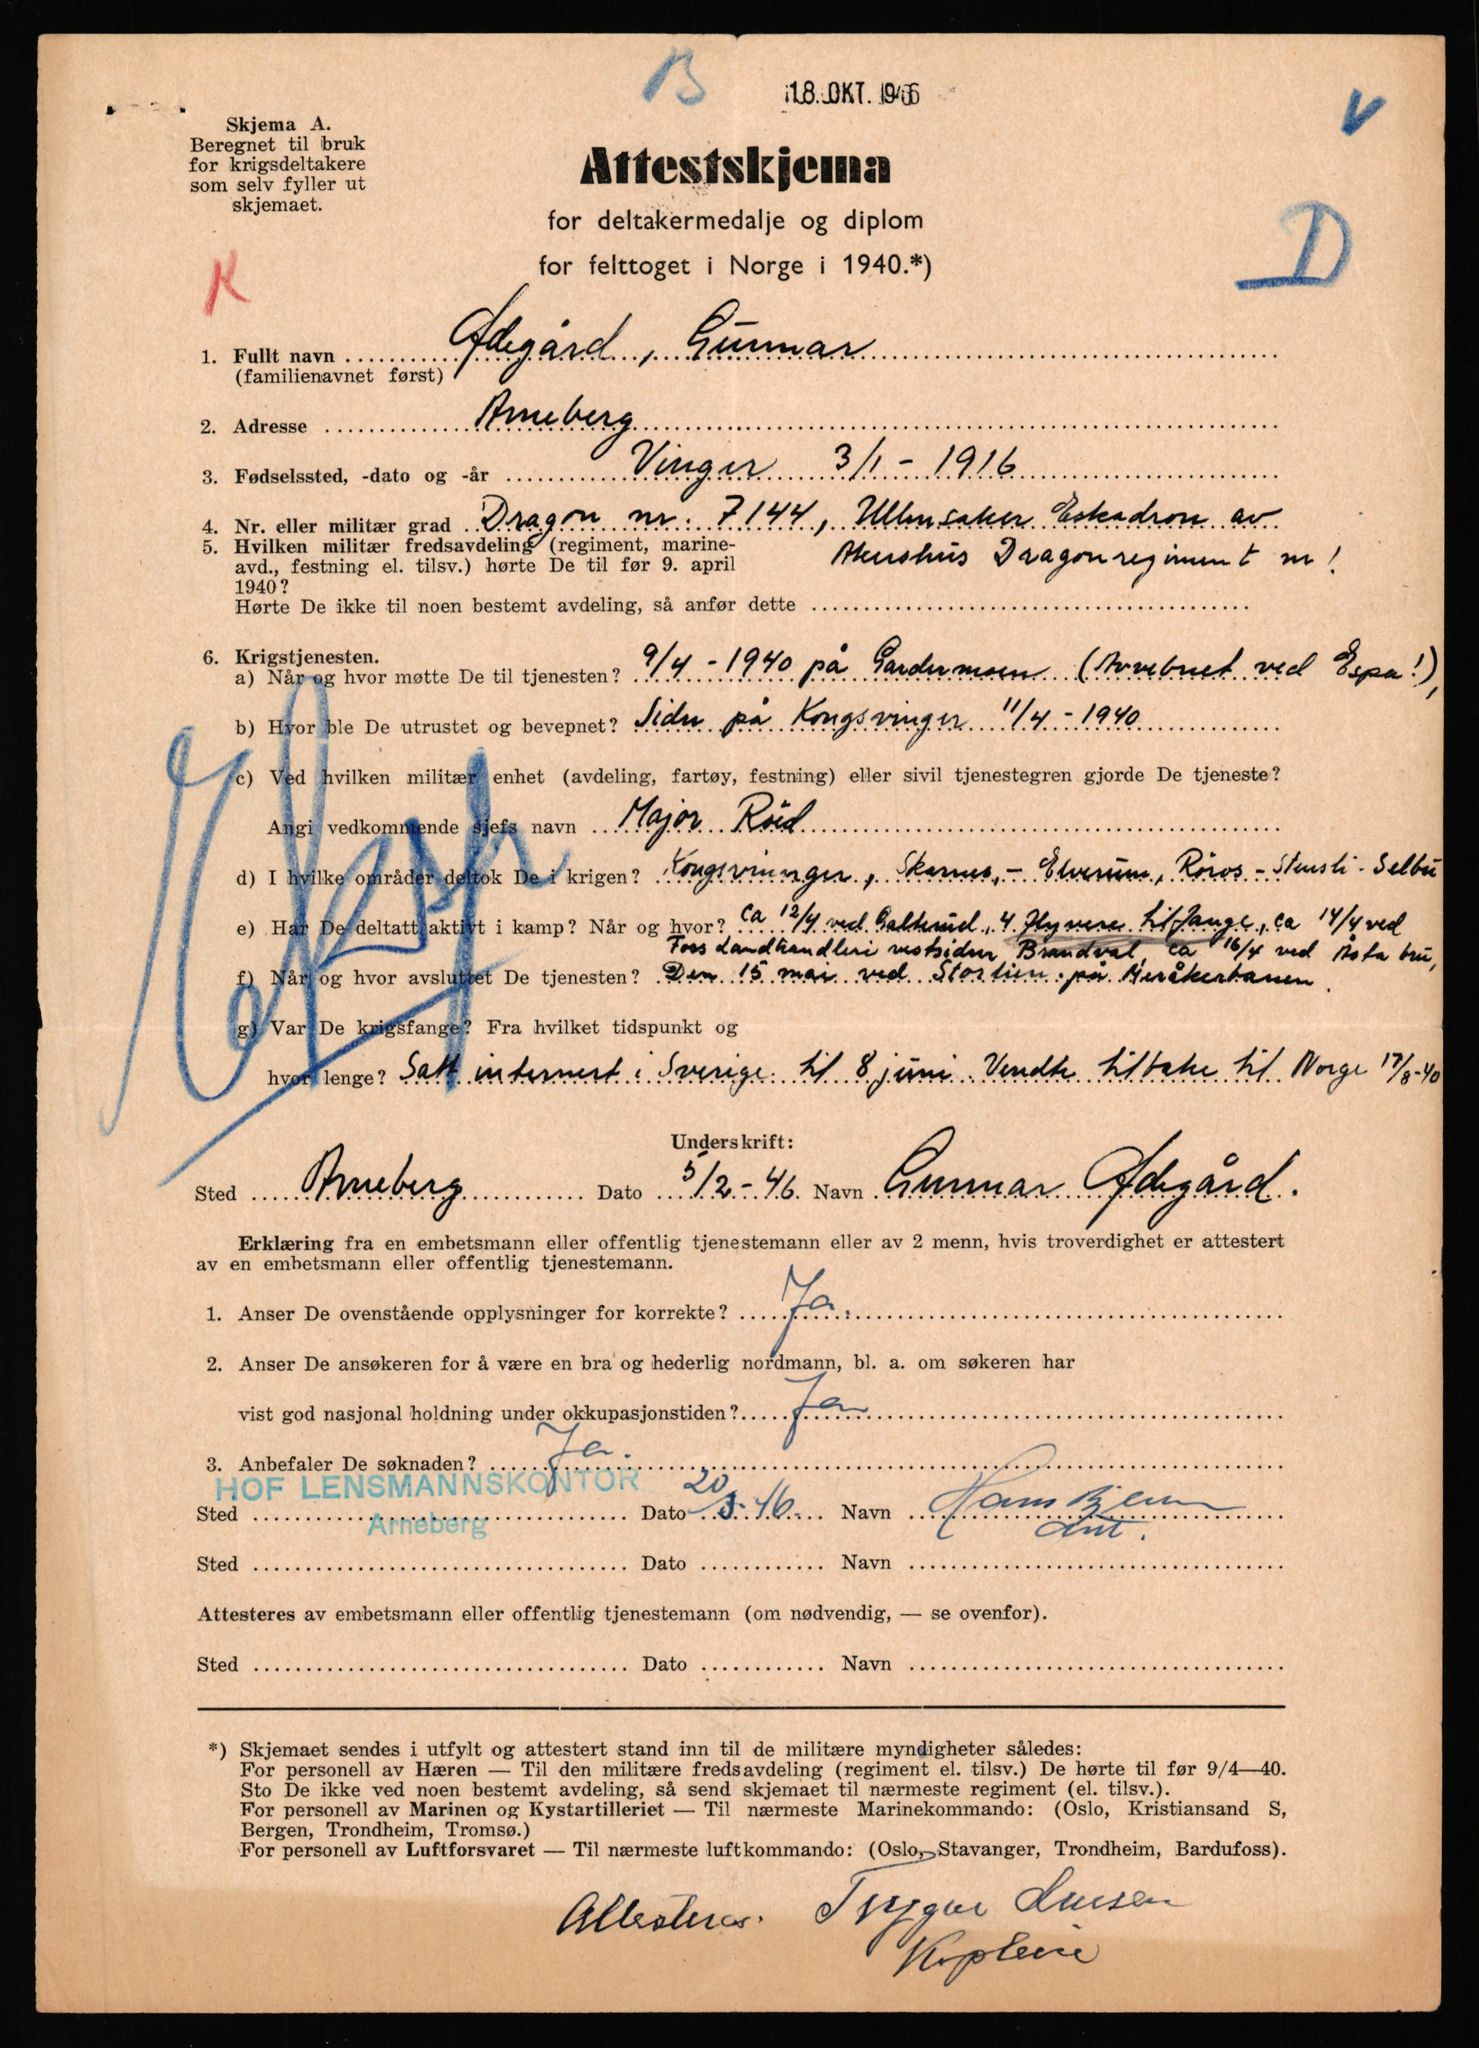 B
18. OKT. 1946
V
Skjema A.
Beregnet til bruk
for krigsdeltakere
som selv fyller ut
skjemaet.
Attestskjema
for deltakermedalje og diplom
for felttoget i Norge i 1940.*)
K
D
1. Fullt navn Ødegård, Gunnar
(familienavnet først)
2. Adresse Arneberg
3. Fødselssted, -dato og -år Vinger 3/1 - 1916
4. Nr. eller militær grad Dragon nr. 7144, Ullensaker Eskadron av
5. Hvilken militær fredsavdeling (regiment, marine- Akershus Dragonregiment nr 1
avd., festning el. tilsv.) hørte De til før 9. april
1940?
Hørte De ikke til noen bestemt avdeling, så anfør dette
6. Krigstjenesten.
a) Når og hvor møtte De til tjenesten? 9/4 - 1940 på Gardermoen (Avvebnet ved Espa!),
b) Hvor ble De utrustet og bevepnet? Siden på Kongsvinger 11/4 - 1940
c) Ved hvilken militær enhet (avdeling, fartøy, festning) eller sivil tjenestegren gjorde De tjeneste?
Angi vedkommende sjefs navn Major Roid
d) I hvilke områder deltok De i krigen? Kongsvinger, Skarnes, - Elverum, Röros - Stensli - Selbu
e) Har De deltatt aktivt i kamp? Når og hvor? ca 12/4 ved Galterud, 4 flyvere til fange, ca 14/4 ved
Fors Landhandleri vestsiden Brandval, ca 16/4 ved Åsta bru,
f) Når og hvor avsluttet De tjenesten? Den 15 mai ved Storlien på Meråkerbanen.
g) Var De krigsfange? Fra hvilket tidspunkt og
hvor lenge? Satt internert i Sverige til 8 juni. Vendte tilbake til Norge 17/8-40
Underskrift:
Sted Arneberg Dato 5/2 - 46 Navn Gunnar Ødegård.
Erklæring fra en embetsmann eller offentlig tjenestemann eller av 2 menn, hvis troverdighet er attestert
av en embetsmann eller offentlig tjenestemann.
1. Anser De ovenstående opplysninger for korrekte? Ja.
2. Anser De ansøkeren for å være en bra og hederlig nordmann, bl. a. om søkeren har
vist god nasjonal holdning under okkupasjonstiden? Ja
3. Anbefaler De søknaden? Ja.
HOF LENSMANNSKONTOR
Sted Arneberg Dato 20/3-46. Navn Hans
Sted Dato Navn
Attesteres av embetsmann eller offentlig tjenestemann (om nødvendig, — se ovenfor).
Sted Dato Navn
*) Skjemaet sendes i utfylt og attestert stand inn til de militære myndigheter således:
For personell av Hæren — Til den militære fredsavdeling (regiment el. tilsv.) De hørte til før 9/4—40.
Sto De ikke ved noen bestemt avdeling, så send skjemaet til nærmeste regiment (el. tilsv.).
For personell av Marinen og Kystartilleriet — Til nærmeste Marinekommando: (Oslo, Kristiansand S,
Bergen, Trondheim, Tromsø.)
For personell av Luftforsvaret — Til nærmeste luftkommando: (Oslo, Stavanger, Trondheim, Bardufoss).
Attesteres. Trygve
Kaptein